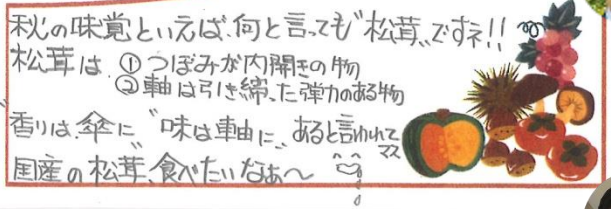 秋の味覚といえば、何と言っても"松茸"ですネ!!
松茸は ①つぼみが内開きの物
②軸は引き締った弾力のある物
香りは、傘に"味は軸に"あると言われて
マス
国産の松茸、食べたいなぁ〜